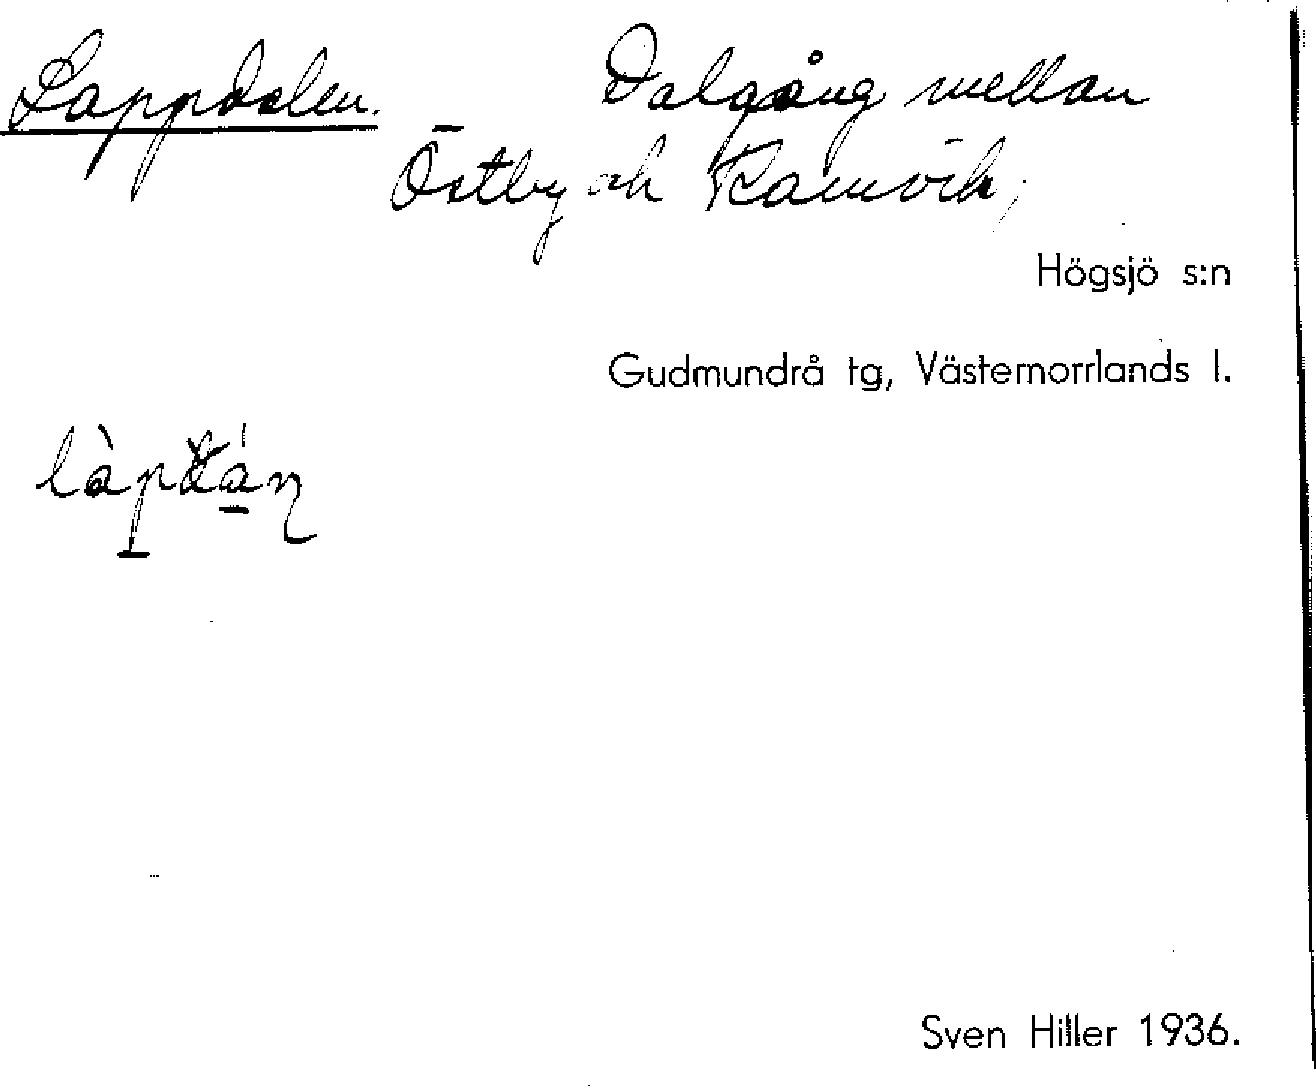 Lappdalen. Dalgång mellan
Östby och Ramvik,
Högsjö s:n
Gudmundrå tg, Västernorrlands l.
Sven Hiller 1936.